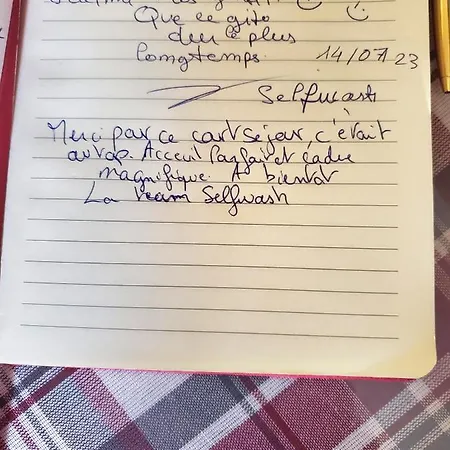 Que ce gite
dure le plus
longtemps. 14/07/23
Selfwash
Merci par ce court séjour, c'était
au top. Acceuil Parfait et cadre
magnifique. A bientot
La team Selfwash